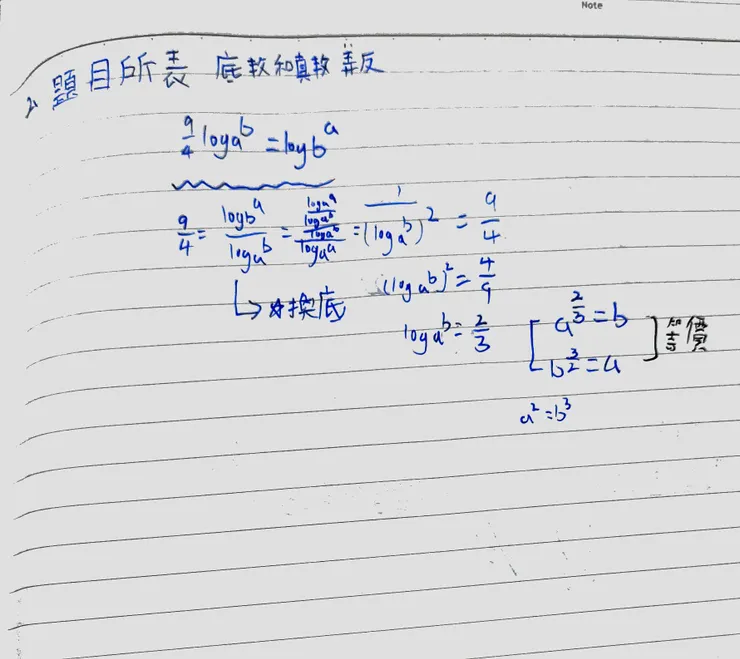 Note
2. 題目所表 底数和真数弄反
9/4 log_a^b = log_b^a
9/4 = log_b^a / log_a^b = (log_a^a / log_a^b) / (log_a^b / log_a^a) = 1 / (log_a^b)^2 = 9/4
↳ 換底
(log_a^b)^2 = 4/9
log_a^b = 2/3
[ a^(2/3) = b
b^(3/2) = a ] 等價
a^2 = b^3